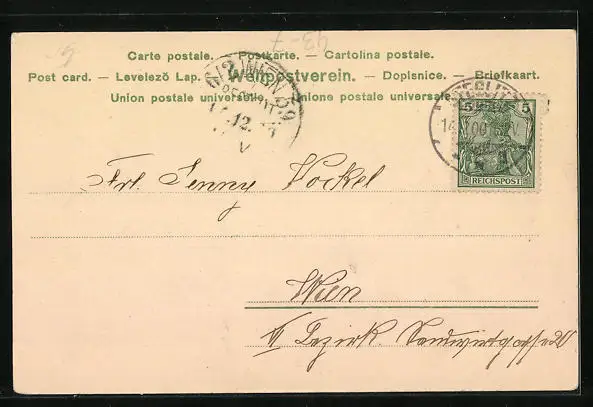 Carte postale. — Postkarte. — Cartolina postale.
Post card. — Levelező Lap. — Weltpostverein. — Dopisnice. — Briefkaart.
Union postale universelle. Unione postale universale.
WIEN
12.
5 5
REICHSPOST
Frl. Jenny Vockel
Wien
Bezirk.